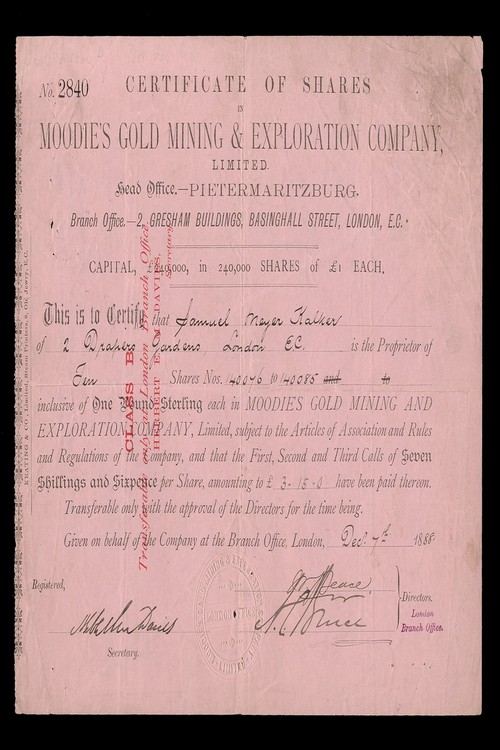 No. 2840
CERTIFICATE OF SHARES
IN
MOODIE'S GOLD MINING & EXPLORATION COMPANY,
LIMITED.
Head Office.—PIETERMARITZBURG.
Branch Office.—2, GRESHAM BUILDINGS, BASINGHALL STREET, LONDON, E.C.
CAPITAL, £240,000, in 240,000 SHARES of £1 EACH.
This is to Certify that Samuel Meyer Kalker
of 2 Drapers Gardens, London E.C. is the Proprietor of
Ten Shares Nos. 140076 to 140085 and to
inclusive of One Pound Sterling each in MOODIE'S GOLD MINING AND
EXPLORATION COMPANY, Limited, subject to the Articles of Association and Rules
and Regulations of the Company, and that the First, Second and Third Calls of Seven
Shillings and Sixpence per Share, amounting to £ 3-15-0 have been paid thereon.
Transferable only with the approval of the Directors for the time being.
Given on behalf of the Company at the Branch Office, London, Decr. 7th 1888
CLASS B.
Transferable only at London Branch Office.
HERBERT E. M. DAVIES,
Secretary.
Registered,
Davies
Secretary.
LONDON OFFICE
LIMITED
Directors.
London
Branch Office.